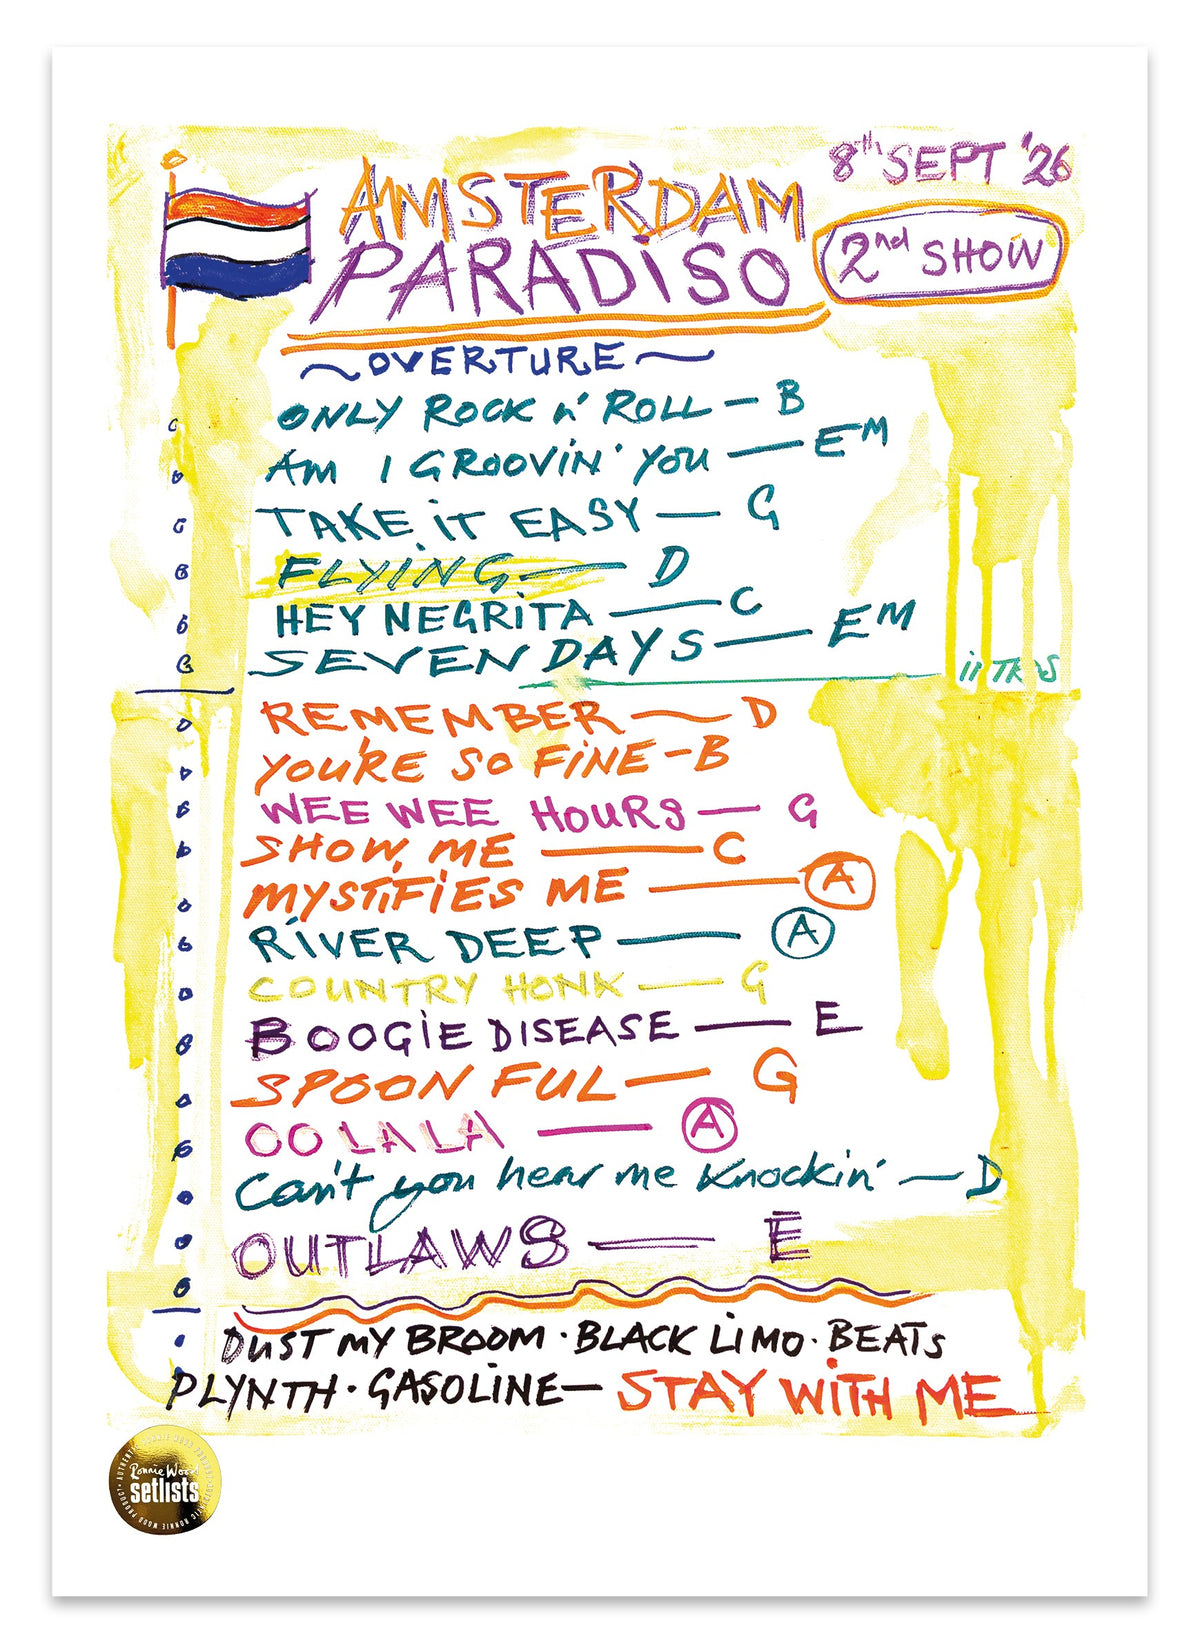 8th SEPT '26
AMSTERDAM
PARADiSO
2nd SHOW
~OVERTURE~
ONLY ROCK n' ROLL — B
AM I GROOVIN' YOU — EM
TAKE iT EASY — G
FLYiNG — D
HEY NEGRiTA — C
SEVEN DAYS — EM
REMEMBER — D
YOU'RE SO FiNE - B
WEE WEE HOURS — G
SHOW, ME — C
MYSTiFiES ME — A
RiVER DEEP — A
COUNTRY HONK — G
BOOGiE DISEASE — E
SPOON FUL — G
OO LA LA — A
Can't you hear me knockin' — D
OUTLAWS — E
DUST MY BROOM · BLACK LiMO · BEATS
PLYNTH · GASOLiNE — STAY WiTH ME
Ronnie Wood
setlists